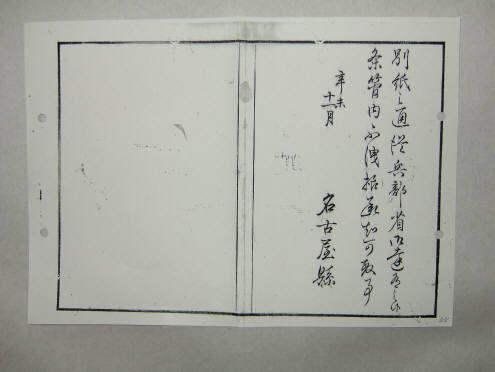 別紙之通従兵部省御達有之候
条管内不洩様承知可致事
辛未
十一月
名古屋縣